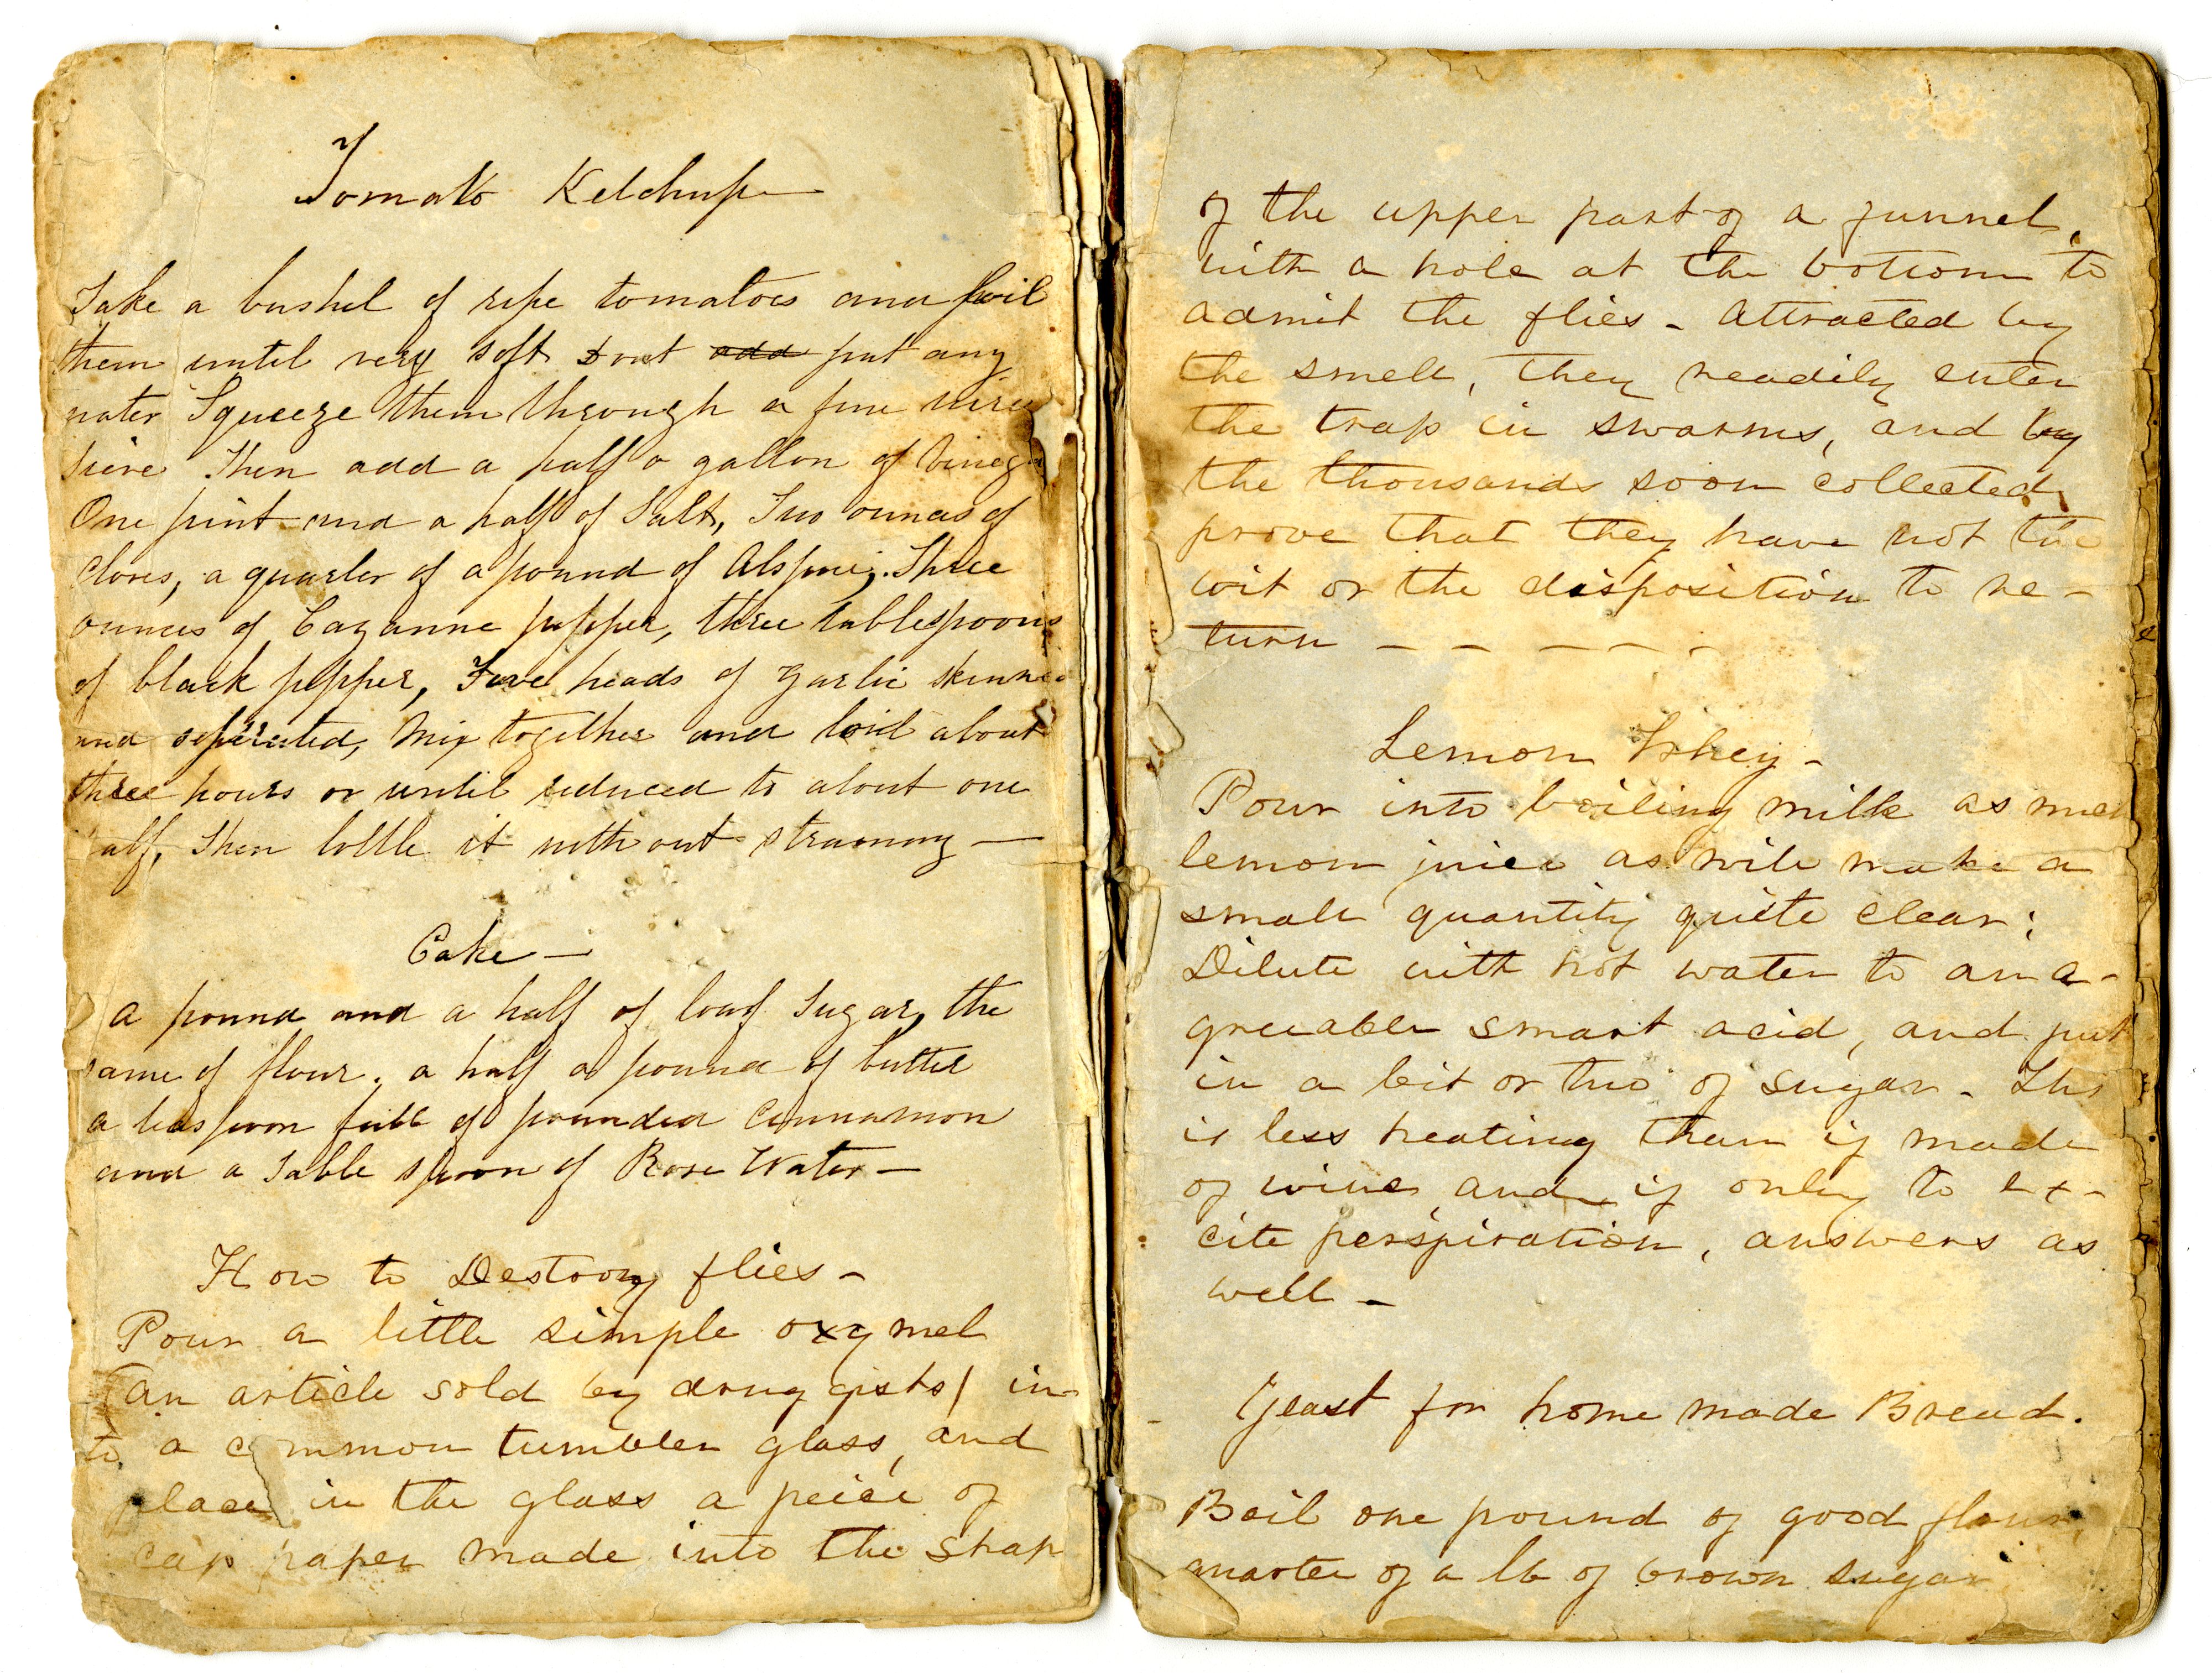 Tomato Ketchup
Take a bushel of ripe tomatoes and boil
them until very soft Dont add put any
water Squeeze them through a fine wire
sieve Then add a half a gallon of Vineg
One pint and a half of Salt, Two ounces of
Cloves, a quarter of a pound of Alspice, Three
ounces of Cayanne pepper, three tablespoons
of black pepper, Five heads of garlic skinned
and seperated, Mix together and boil about
three hours or until reduced to about one
half, Then bottle it without straining —
Cake —
a pound and a half of loaf Sugar, the
same of flour, a half a pound of butter
a teaspoon full of pounded Cinnamon
and a Table spoon of Rose Water —
How to Destroy flies —
Pour a little simple oxymel
(an article sold by druggists) in-
to a common tumbler glass, and
place in the glass a peice of
cap paper made into the shap
of the upper part of a funnel,
with a hole at the bottom to
admit the flies - Attracted by
the smell, they readily enter
the trap in swarms, and by
the thousands soon collected
prove that they have not the
wit or the disposition to re -
turn — — — — —
Lemon Whey -
Pour into boiling milk as much
lemon juice as will make a
small quantity quite clear;
Dilute with hot water to an a-
greeable smart acid, and put
in a bit or two of sugar - This
is less heating than if made
of wine and if only to ex-
cite perspiration, answers as
well -
Yeast for home made Bread.
Boil one pound of good flour,
quarter of a lb of brown sugar